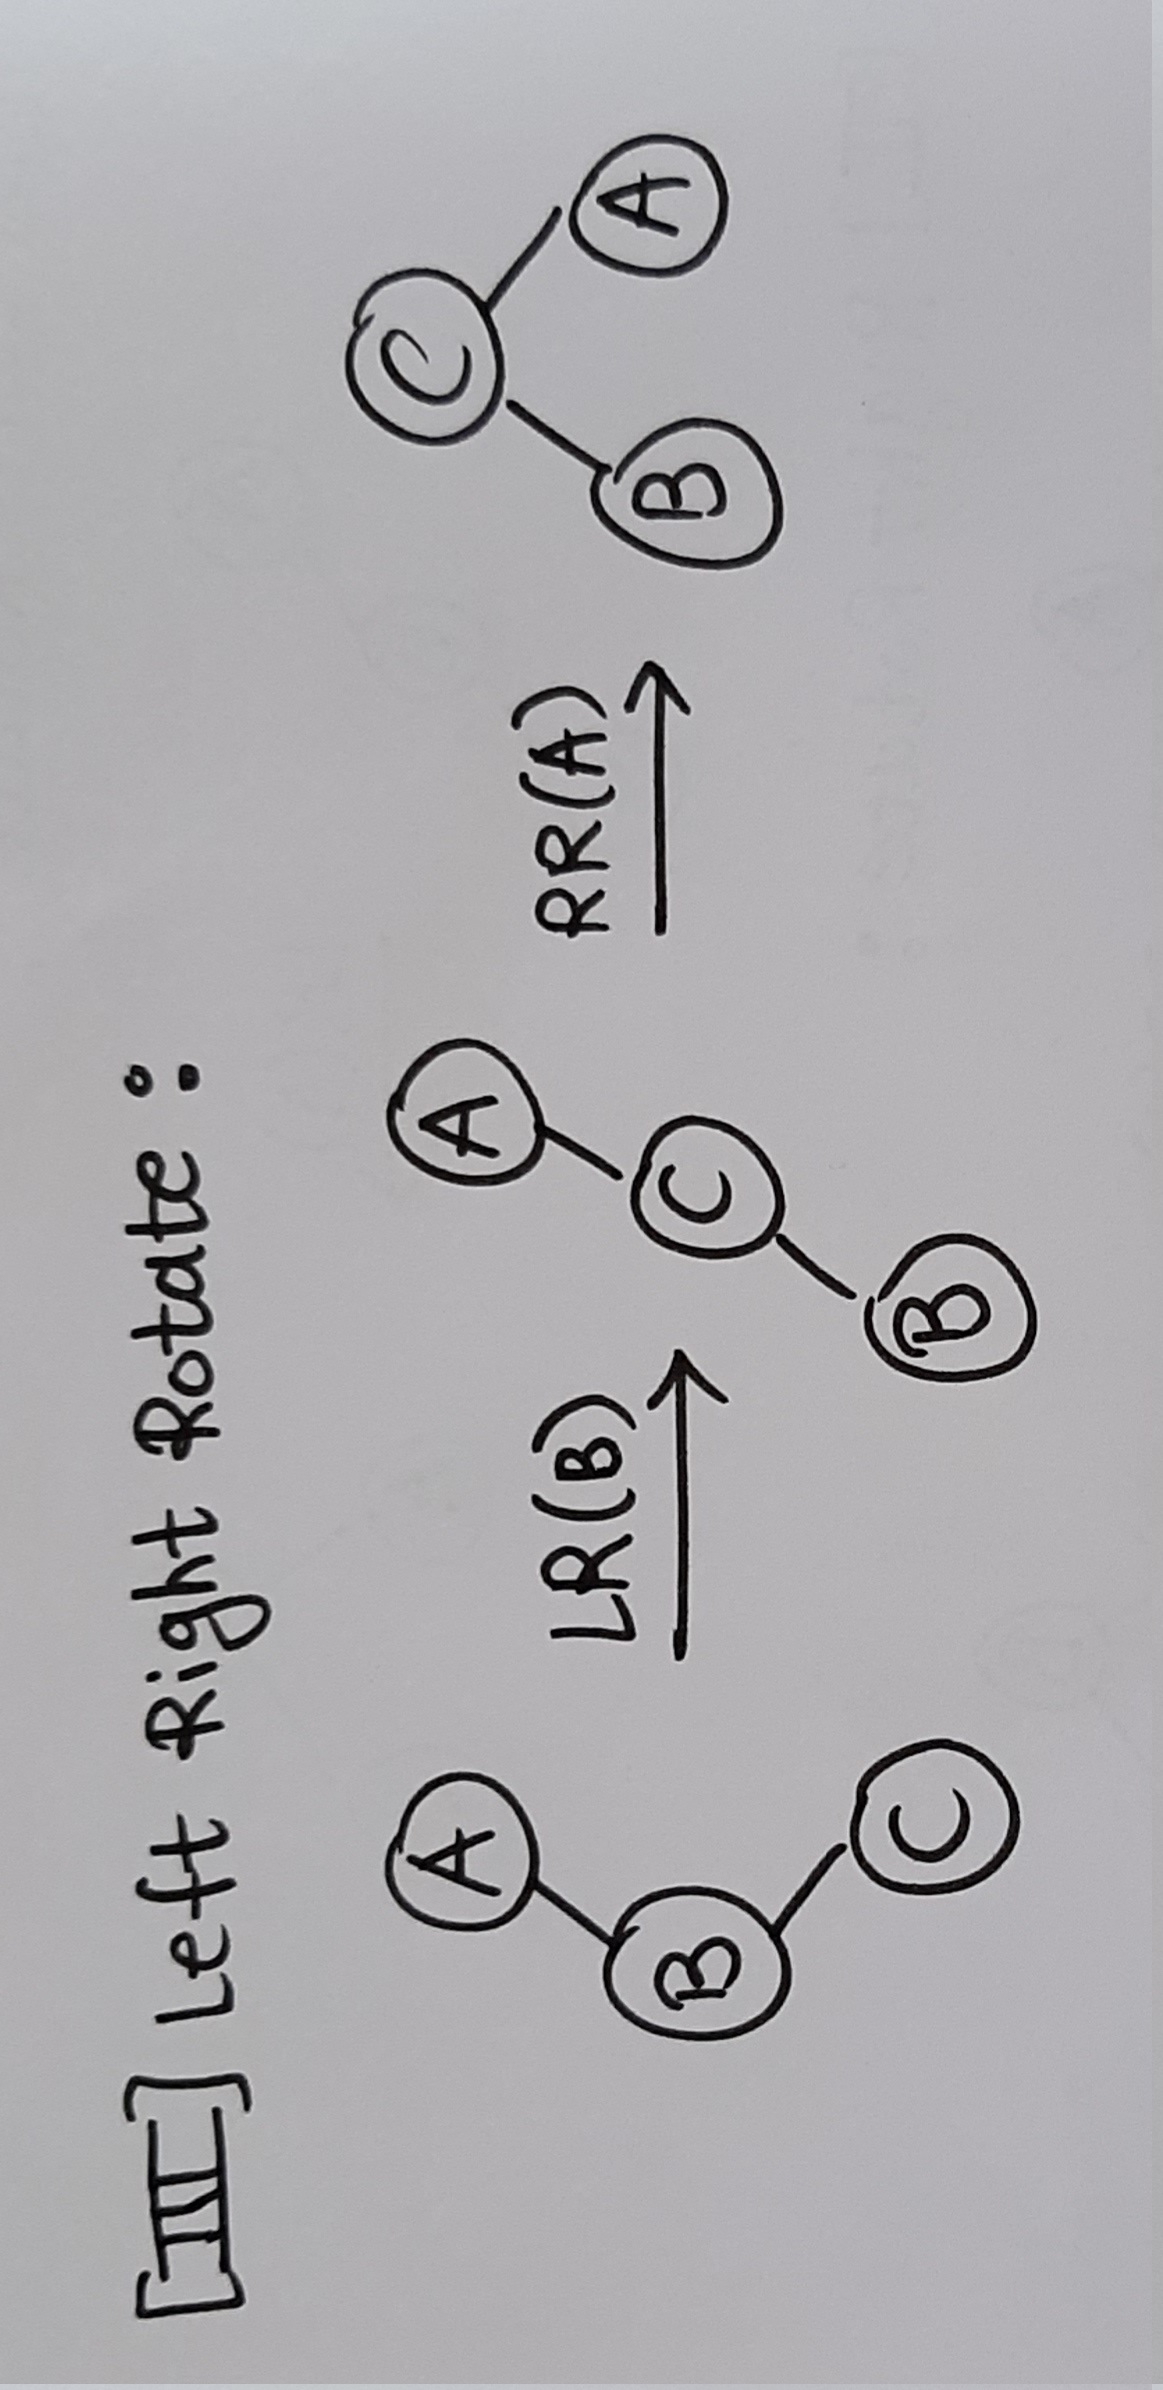 [III] Left Right Rotate :
A
B
C
LR(B)
A
C
B
RR(A)
C
B
A